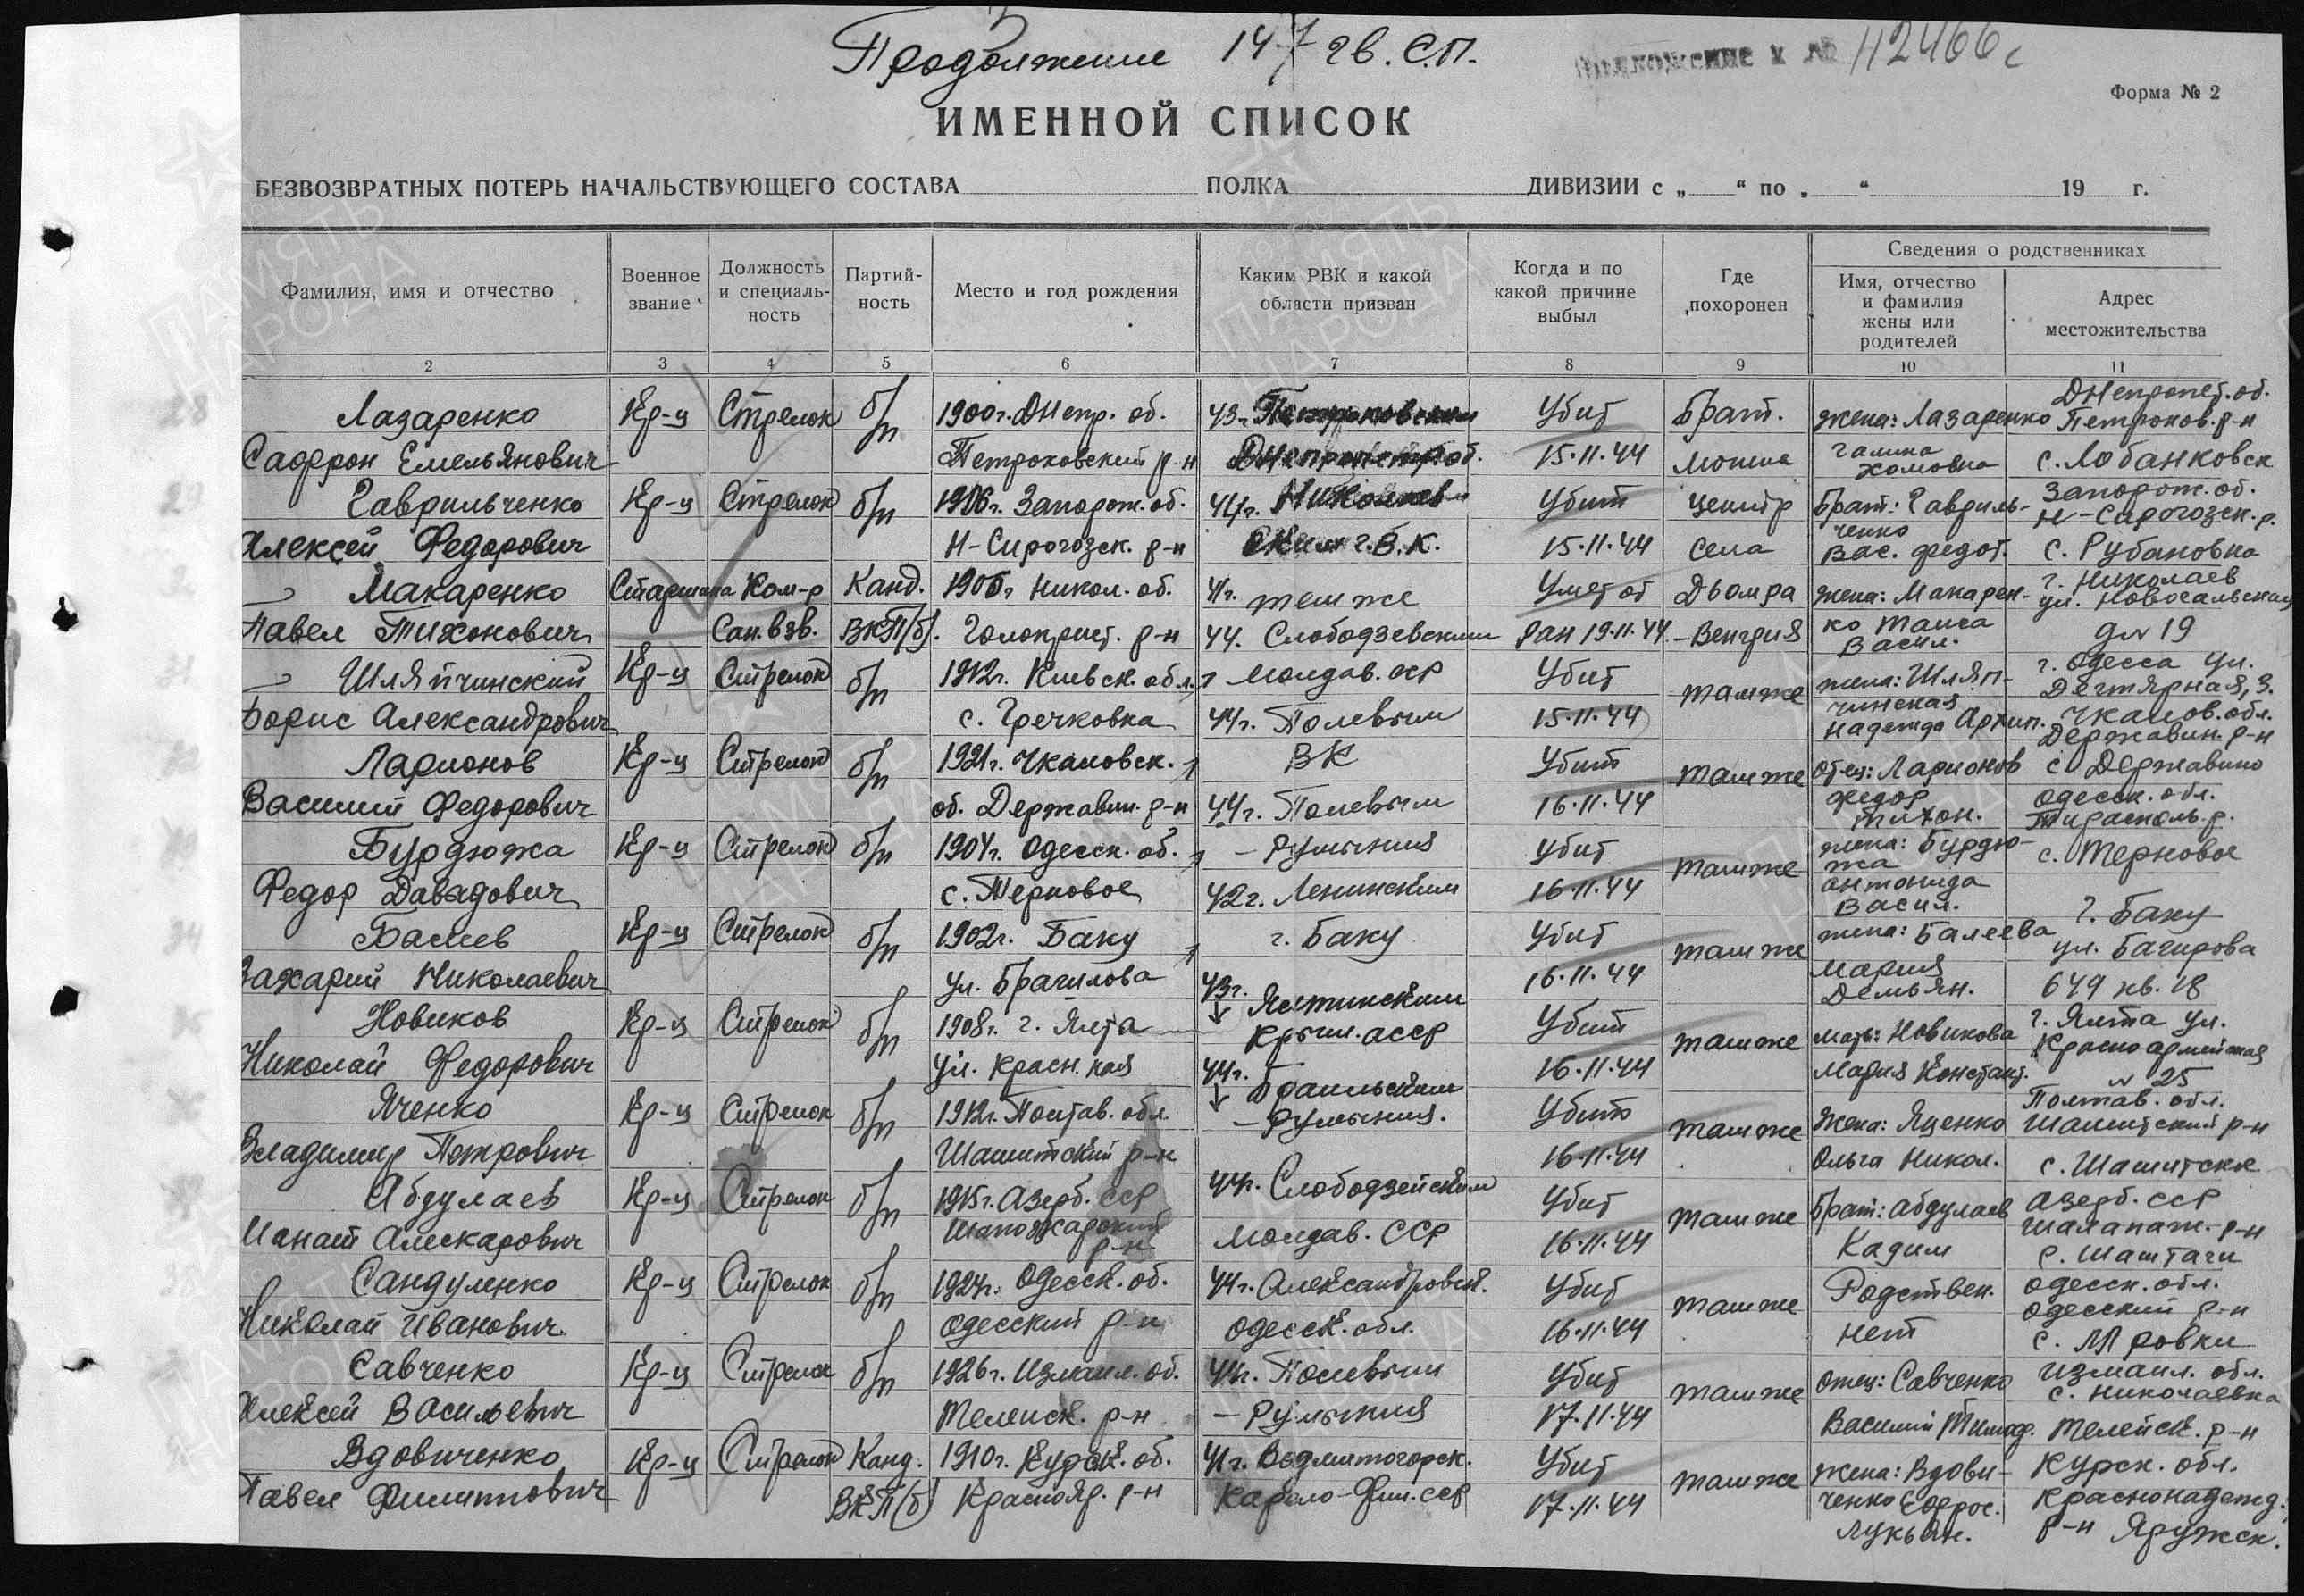 Продолжение 147 гв. С.П.
Приложение к № 42466с
Форма № 2
ИМЕННОЙ СПИСОК
БЕЗВОЗВРАТНЫХ ПОТЕРЬ НАЧАЛЬСТВУЮЩЕГО СОСТАВА ПОЛКА ДИВИЗИИ с „ “ по „ “ 19 г.
Фамилия, имя и отчество
Военное
звание
Должность
и специаль-
ность
Партий-
ность
Место и год рождения
Каким РВК и какой
области призван
Когда и по
какой причине
выбыл
Где
похоронен
Сведения о родственниках
Имя, отчество
и фамилия
жены или
родителей
Адрес
местожительства
2 3 4 5 6 7 8 9 10 11
Лазаренко Кр-ц Стрелок б/п 1900г. Днепр. об. 43г. Убит Брат. жена: Лазаренко Днепропет. об.
Петроков. р-н
Сафрон Емельянович Петроковский р-н 15.11.44 могила Галина
Хомовна с. Лобанковск
Гаврильченко Кр-ц Стрелок б/п 1926г. Запорож. об. 44г. Убит центр Брат: Гавриль-
ченко Запорож. об.
Н-Сирогозск. р.
Алексей Федорович Н-Сирогозск. р-н Г.В.К. 15.11.44 села Вас. Федот. с. Рубановка
Макаренко Старшина Ком-р Канд. 1906г Никол. об. 41г. там же Умер от Дьомра жена: Макарен- г. Николаев
ул. Новосальская
Павел Тихонович Сан. взв. ВКП/б/. Голоприст. р-н 44. Слободзевским ран 19.11.44 -Венгрия ко Таиса
Васил. д № 19
Шляпчинский Кр-ц Стрелок б/п 1912г. Киевск. обл. Молдав. сср Убит там же жена: Шляп-
чинская г. Одесса ул.
Дегтярная, 3.
Борис Александрович с. Гречковка 44г. Полевым 15.11.44 Надежда Архип.
Ларионов Кр-ц Стрелок б/п 1921г. Чкаловск. ВК Убит там же отец: Ларионов Чкалов. обл.
Державин. р-н
с. Державино
Василий Федорович об. Державин. р-н 44г. Полевым 16.11.44 Федор
Тихон.
Бурдюжа Кр-ц Стрелок б/п 1904г. Одесск. об. -Румыния Убит там же жена: Бурдю-
жа Одесск. обл.
Тирасполь. р.
с. Терновое
Федор Давадович с. Терновое 42г. Ленинским 16.11.44 Антонида
Васил.
Балиев Кр-ц Стрелок б/п 1902г. Баку г. Баку Убит там же жена: Балеева г. Баку
ул. Багирова
Захарий Николаевич ул. Брагилова 16.11.44 Мария
Демьян. 649 кв. 18
Новиков Кр-ц Стрелок б/п 1908г. г. Ялта 43г. Ялтинским
Крым. асср Убит там же мать: Новикова г. Ялта ул.
Красноармейская
Николай Федорович ул. Красн. ная 16.11.44 Мария Констант. № 25
Яченко Кр-ц Стрелок б/п 1912г. Полтав. обл. 44г. Браильским
-Румыния. Убит там же жена: Яценко Полтав. обл.
Шашитский р-н
Владимир Петрович Шашитский р-н 16.11.44 Ольга Никол. с. Шашитске
Абдулаев Кр-ц Стрелок б/п 1915г. Азерб. сср 44г. Слободзейским Убит там же Брат: Абдулаев Азерб. сср
р-н
р-н Молдав. ССР 16.11.44 Кадим с. Шаштаги
Сандуленко Кр-ц Стрелок б/п 1924г. Одесск. об. 44г. Александровск. Убит там же Родствен. Одесск. обл.
Одесский р-н
Николай Иванович Одесский р-н Одесск. обл. 16.11.44 нет
Савченко Кр-ц Стрелок б/п 1926г. Измаил. об. 44г. Полевым Убит там же отец: Савченко Измаил. обл.
с. Николаевка
Алексей Васильевич р-н -Румыния 17.11.44 Василий Тимоф. р-н
Вдовиченко Кр-ц Стрелок Канд. 1910г. Курск. об. 41г. Убит там же жена: Вдови- Курск. обл.
Павел Филиппович ВКП(б) Краснояр. р-н Карело-Фин. сср 17.11.44 ченко Ефрос.
Лукьян. р-н Яружск.
ПАМЯТЬ
НАРОДА